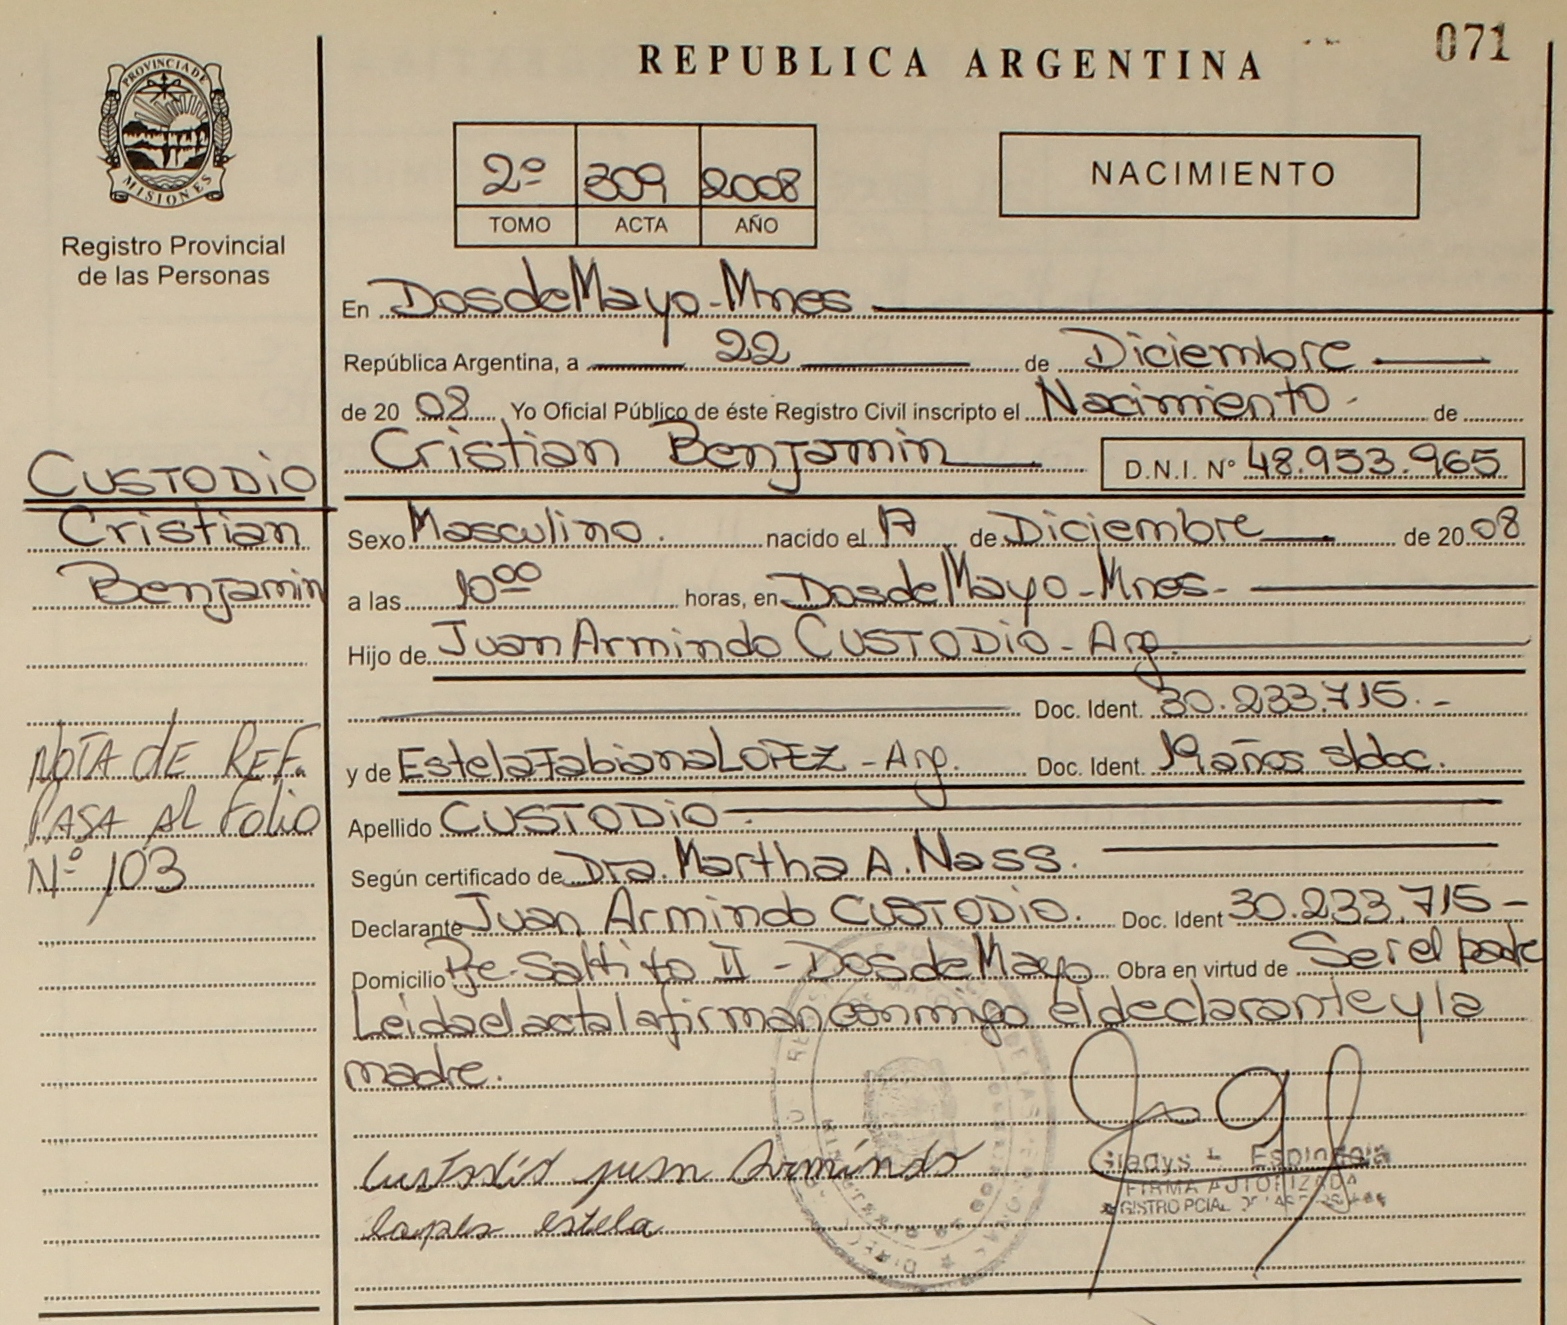 071
REPUBLICA ARGENTINA
PROVINCIA DE
MISIONES
Registro Provincial
de las Personas
2º 309 2008
TOMO ACTA AÑO
NACIMIENTO
En Dos de Mayo - Mnes
República Argentina, a 22 de Diciembre
de 20 08 Yo Oficial Público de éste Registro Civil inscripto el Nacimiento - de
Cristian Benjamin D.N.I. Nº 48.953.965
CUSTODIO
Cristian
Benjamin
Sexo Masculino. nacido el 17 de Diciembre de 20 08
a las 10 00 horas, en Dos de Mayo - Mnes -
Hijo de Juan Armindo CUSTODIO - Arg.
Doc. Ident. 30.233.715. -
y de Estela Fabiana LOPEZ - Arg. Doc. Ident. 19 años s/doc.
NOTA de REF.
PASA AL Folio
Nº 103
Apellido CUSTODIO -
Según certificado de Dra. Martha A. Nass.
Declarante Juan Armindo CUSTODIO. Doc. Ident 30.233.715 -
Domicilio Pje. Saltito II - Dos de Mayo Obra en virtud de Ser el padre
Leida el acta la firman conmigo el declarante y la
madre.
Custodio juan Armindo
lopes estela
Gladys L. Espindola
FIRMA AUTORIZADA
REGISTRO PCIAL. DE LAS PERSONAS